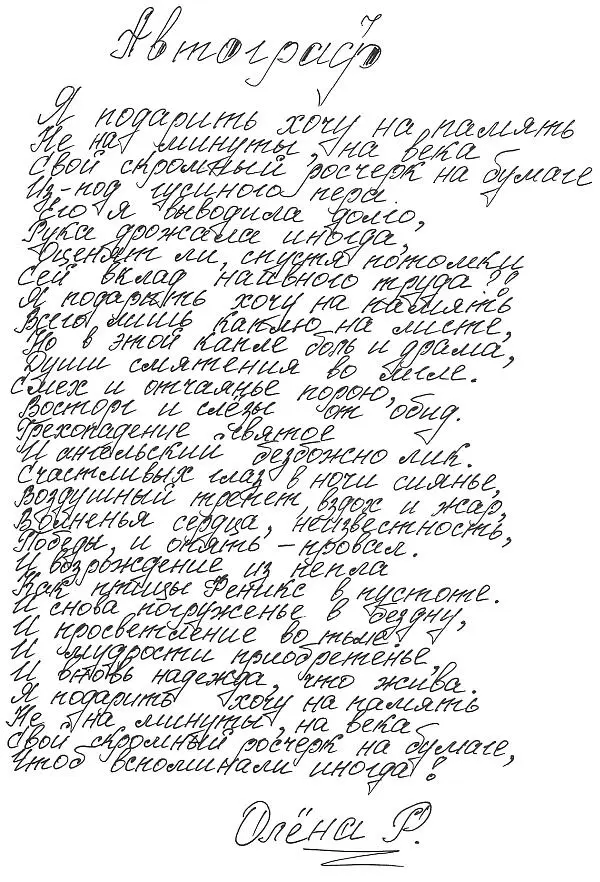 Автограф
Я подарить хочу на память
Не на минуты, на века
Свой скромный росчерк на бумаге
Из-под гусиного пера.
Его я выводила долго,
Рука дрожала иногда,
Оценят ли, спустя потомки
Сей вклад наивного труда??
Я подарить хочу на память
Всего лишь каплю на листе,
Но в этой капле боль и драма,
Души смятения во мгле.
Смех и отчаянье порою,
Восторг и слёзы от обид.
Грехопадение святое
И ангельский безбожно лик.
Счастливых глаз в ночи сиянье,
Воздушный трепет, вздох и жар,
Волненья сердца, неизвестность,
Победы, и опять - провал.
И возрождение из пепла
Как птицы Феникс в пустоте.
И снова погруженье в бездну,
И просветление во тьме.
И мудрости приобретенье,
И вновь надежда, что жива.
Я подарить хочу на память
Не на минуты, на века
Свой скромный росчерк на бумаге,
Чтоб вспоминали иногда!
Олёна Р.